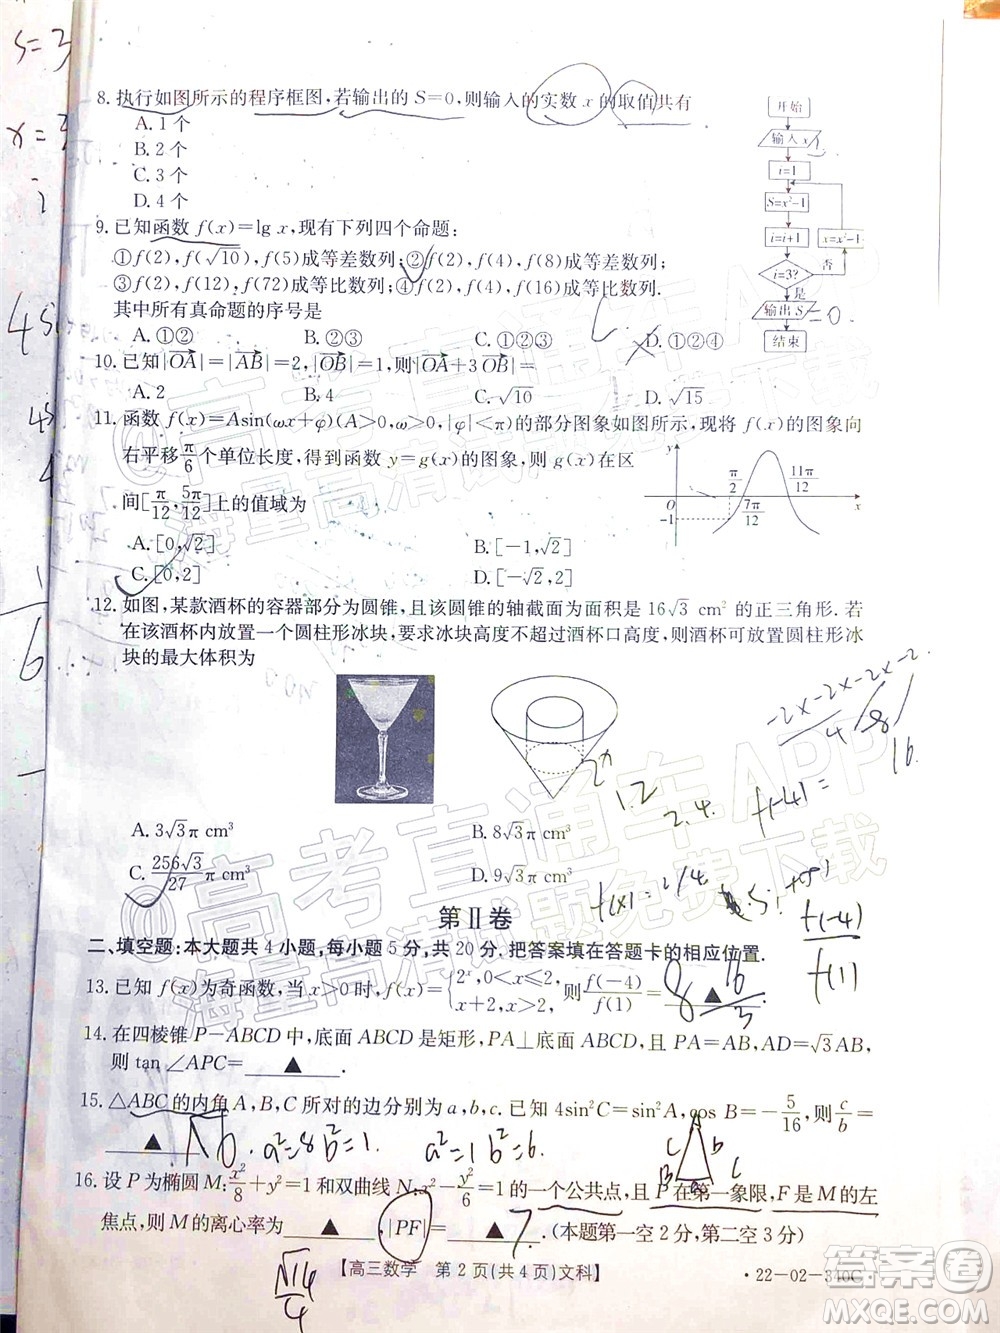 S=3
x=3
i
8. 执行如图所示的程序框图,若输出的 S=0,则输入的实数 x 的取值共有
A. 1 个
B. 2 个
C. 3 个
D. 4 个
开始
输入 x
i=1
S=x²-1
i=i+1
x=x²-1
i=3?
否
是
输出 S
=0
结束
9. 已知函数 f(x)=lg x,现有下列四个命题:
①f(2),f(√10),f(5)成等差数列;②f(2),f(4),f(8)成等差数列;
③f(2),f(12),f(72)成等比数列;④f(2),f(4),f(16)成等比数列.
其中所有真命题的序号是
A. ①② B. ③④ C. ①②③ D. ①②④
10. 已知|OA|=|AB|=2,|OB|=1,则|OA+3OB|=
A. 2 B. 4 C. √10 D. √15
11. 函数 f(x)=Asin(ωx+φ)(A>0,ω>0,|φ|<π)的部分图象如图所示,现将 f(x)的图象向
右平移π/6个单位长度,得到函数 y=g(x)的图象,则 g(x)在区
间[π/12,5π/12]上的值域为
y
π/2
11π/12
O
7π/12
x
-1
A. [0,√2] B. [-1,√2]
C. [0,2] D. [-√2,2]
12. 如图,某款酒杯的容器部分为圆锥,且该圆锥的轴截面为面积是 16√3 cm² 的正三角形.若
在该酒杯内放置一个圆柱形冰块,要求冰块高度不超过酒杯口高度,则酒杯可放置圆柱形冰
块的最大体积为
A. 3√3π cm³ B. 8√3π cm³
C. 256√3/27 π cm³ D. 9√3π cm³
1
6
4
8
16
1.2
2.4.
f(-4)=
f(x)=2/4
f(-4)
f(1)
第Ⅱ卷
二、填空题:本大题共 4 小题,每小题 5 分,共 20 分.把答案填在答题卡的相应位置.
13. 已知 f(x)为奇函数,当 x>0 时,f(x)={2ˣ,0<x≤2, x+2,x>2, 则 f(-4)/f(1)=▲.
8
16/3
14. 在四棱锥 P-ABCD 中,底面 ABCD 是矩形,PA⊥底面 ABCD,且 PA=AB,AD=√3AB,
则 tan∠APC=▲.
15. △ABC的内角 A,B,C 所对的边分别为 a,b,c.已知 4sin²C=sin²A,cos B=-5/16,则 c/b=
▲.
a²=8 b²=1.
a²=1 b²=6.
16. 设 P 为椭圆 M:x²/8+y²=1 和双曲线 N:x²-y²/6=1 的一个公共点,且 P 在第一象限,F 是 M 的左
焦点,则 M 的离心率为▲,|PF|=▲.(本题第一空 2 分,第二空 3 分)
√14/4
【高三数学 第 2 页(共 4 页)文科】
·22-02-340C·
@高考直通车APP
海量高清试题免费下载
@高考直通车APP
海量高清试题免费下载
答案圈
MXQE.COM